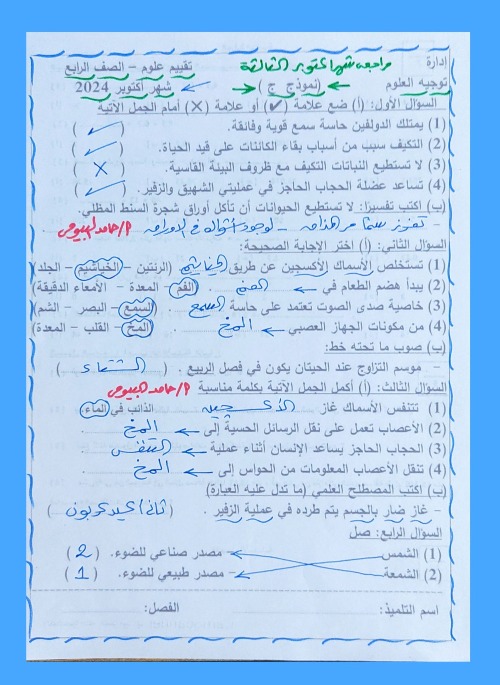 إدارة مراجعه شهر اكتوبر الثالثة تقييم علوم – الصف الرابع
توجيه العلوم (نموذج ج) شهر أكتوبر 2024
السؤال الأول: (أ) ضع علامة (✓) أو علامة (X) أمام الجمل الآتية
(1) يمتلك الدولفين حاسة سمع قوية وفائقة. (✓)
(2) التكيف سبب من أسباب بقاء الكائنات على قيد الحياة. (✓)
(3) لا تستطيع النباتات التكيف مع ظروف البيئة القاسية. (X)
(4) تساعد عضلة الحجاب الحاجز في عمليتي الشهيق والزفير. (✓)
(ب) اكتب تفسيرًا: لا تستطيع الحيوانات أن تأكل أوراق شجرة السنط المظلي.
– تفرز سمًا مر مذاقه – لوجود اشواك في الاوراق. أ/حامد البيومي
السؤال الثاني: (أ) اختر الإجابة الصحيحة:
(1) تستخلص الأسماك الأكسجين عن طريق الخياشيم (الرئتين – الخياشيم – الجلد)
(2) يبدأ هضم الطعام في الفم. (الفم – المعدة – الأمعاء الدقيقة)
(3) خاصية صدى الصوت تعتمد على حاسة السمع. (السمع – البصر – الشم)
(4) من مكونات الجهاز العصبي المخ. (المخ – القلب – المعدة)
(ب) صوب ما تحته خط:
– موسم التزاوج عند الحيتان يكون في فصل الربيع. (الشتاء)
السؤال الثالث: (أ) أكمل الجمل الآتية بكلمة مناسبة أ/حامد البيومي
(1) تتنفس الأسماك غاز الأكسجين الذائب في الماء.
(2) الأعصاب تعمل على نقل الرسائل الحسية إلى المخ
(3) الحجاب الحاجز يساعد الإنسان أثناء عملية التنفس.
(4) تنقل الأعصاب المعلومات من الحواس إلى المخ
(ب) اكتب المصطلح العلمي (ما تدل عليه العبارة)
– غاز ضار بالجسم يتم طرده في عملية الزفير. (ثاني اكسيد كربون)
السؤال الرابع: صل
(1) الشمس – مصدر صناعي للضوء. (2)
(2) الشمعة – مصدر طبيعي للضوء. (1)
اسم التلميذ: الفصل: